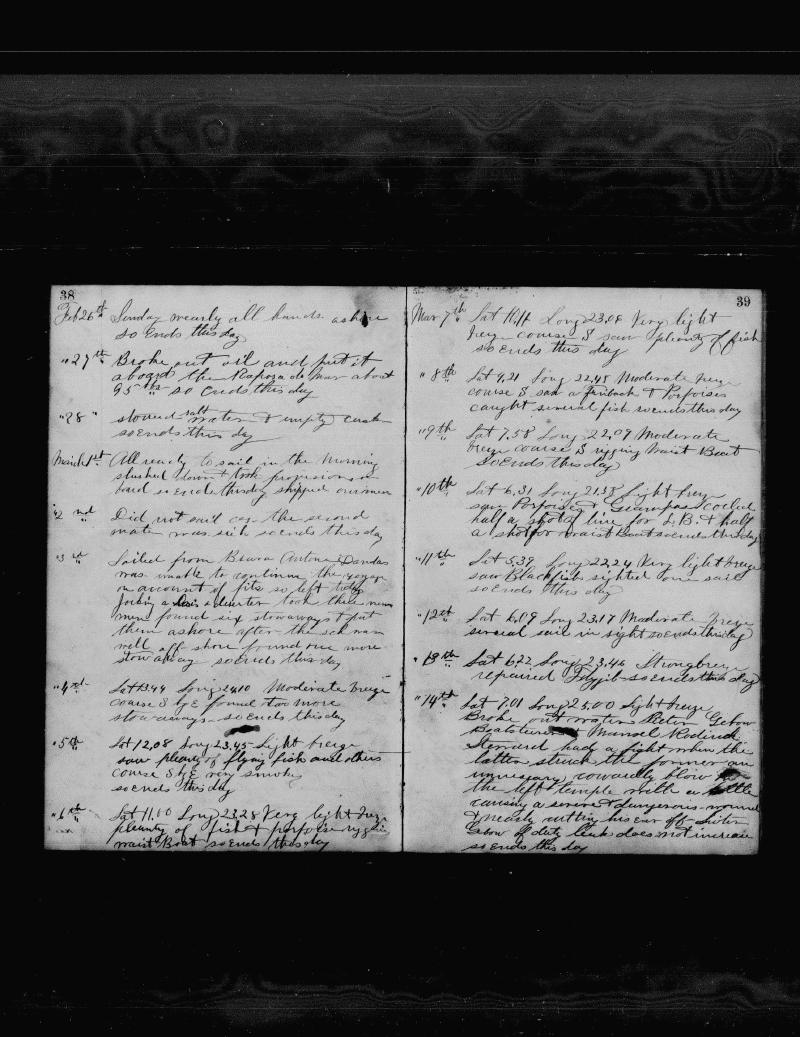 38
Feb 26th Sunday nearly all hands ashore
so Ends this day
" 27th Broke out oil and put it
aboard the Raposa de Mar about
95 bbls so Ends this day
" 28 " stowed salt water & empty cask
so Ends this day
March 1st All ready to sail in the morning
slushed down & took provisions on
board so ends this day shipped our men
" 2nd Did not sail the second
mate was sick so ends this day
" 3rd Sailed from Brava Antone Dandas
was unable to continue the voyage
on account of fits so left today
Joking a Lewis a deserter took three new
men found six stowaways & put
them ashore after the sch man
well off shore found one more
stowaway so ends this day
" 4th Lat 13.44 Long 24.10 Moderate breeze
course S by E found two more
stowaways so ends this day
" 5th Lat 12,08 Long 23,45 Light breeze
saw plenty of flying fish and others
course S by E very smoky
so ends this day
" 6th Lat 11.10 Long 23,28 Very light breeze
plenty of fish & porpoise rigging
waist Boat so ends this day
39
Mar 7th Lat Long 23,08 Very light
breeze course S saw plenty of fish
so ends this day
" 8th Lat 9,21 Long 22,48 Moderate breeze
course S saw a finback & Porpoises
caught several fish so ends this day
" 9th Lat 7.58 Long 22,09 Moderate
breeze course S rigging Waist Boat
so Ends this day
" 10th Lat 6.31 Long 21.38 Light breeze
saw Porpoise & Grampus coiled
half a shot of line for L.B. & half
a shot for waist Boat so ends this day
" 11th Lat 5.39 Long 22,24 Very light breeze
saw Blackfish sighted one sail
so ends this day
" 12th Lat 6.09 Long 23.17 Moderate breeze
several sail in sight so ends this day
" 13th Lat 6.22 Long 23.46 Strong breeze
repaired Fly jib so ends this day
" 14th Lat 7.01 Long 25.00 Light breeze
Broke out water Sister Gebow
Boatsteerer & Manuel Roderick
Steward had a fight when the
latter struck the former an
unnessary, cowardly blow
the left temple with a bottle
causing a severe & dangerous wound
& nearly cutting his ear off Sister
Gebow off duty leak does not increase
so ends this day